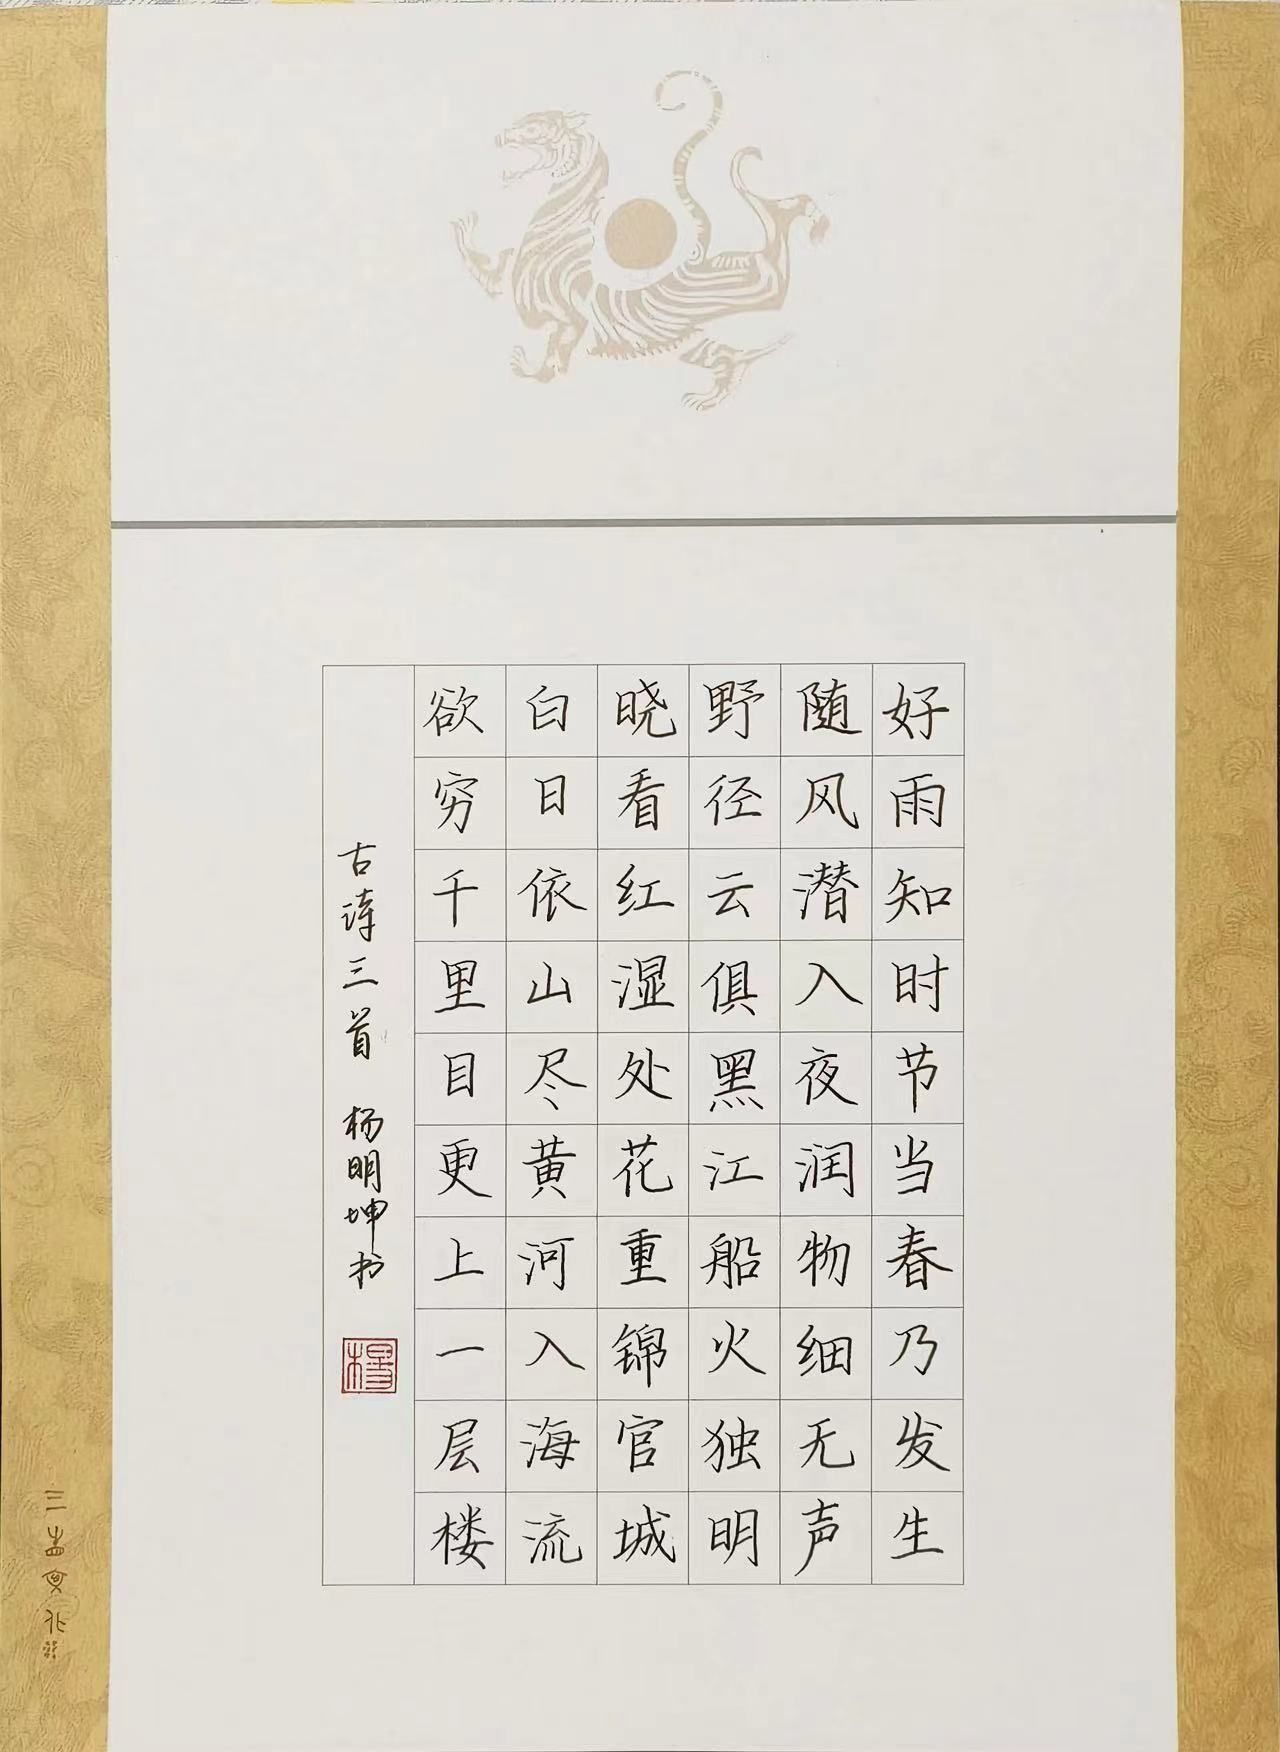 好雨知时节当春乃发生
随风潜入夜润物细无声
野径云俱黑江船火独明
晓看红湿处花重锦官城
白日依山尽黄河入海流
欲穷千里目更上一层楼
古诗三首 杨明坤书
楊